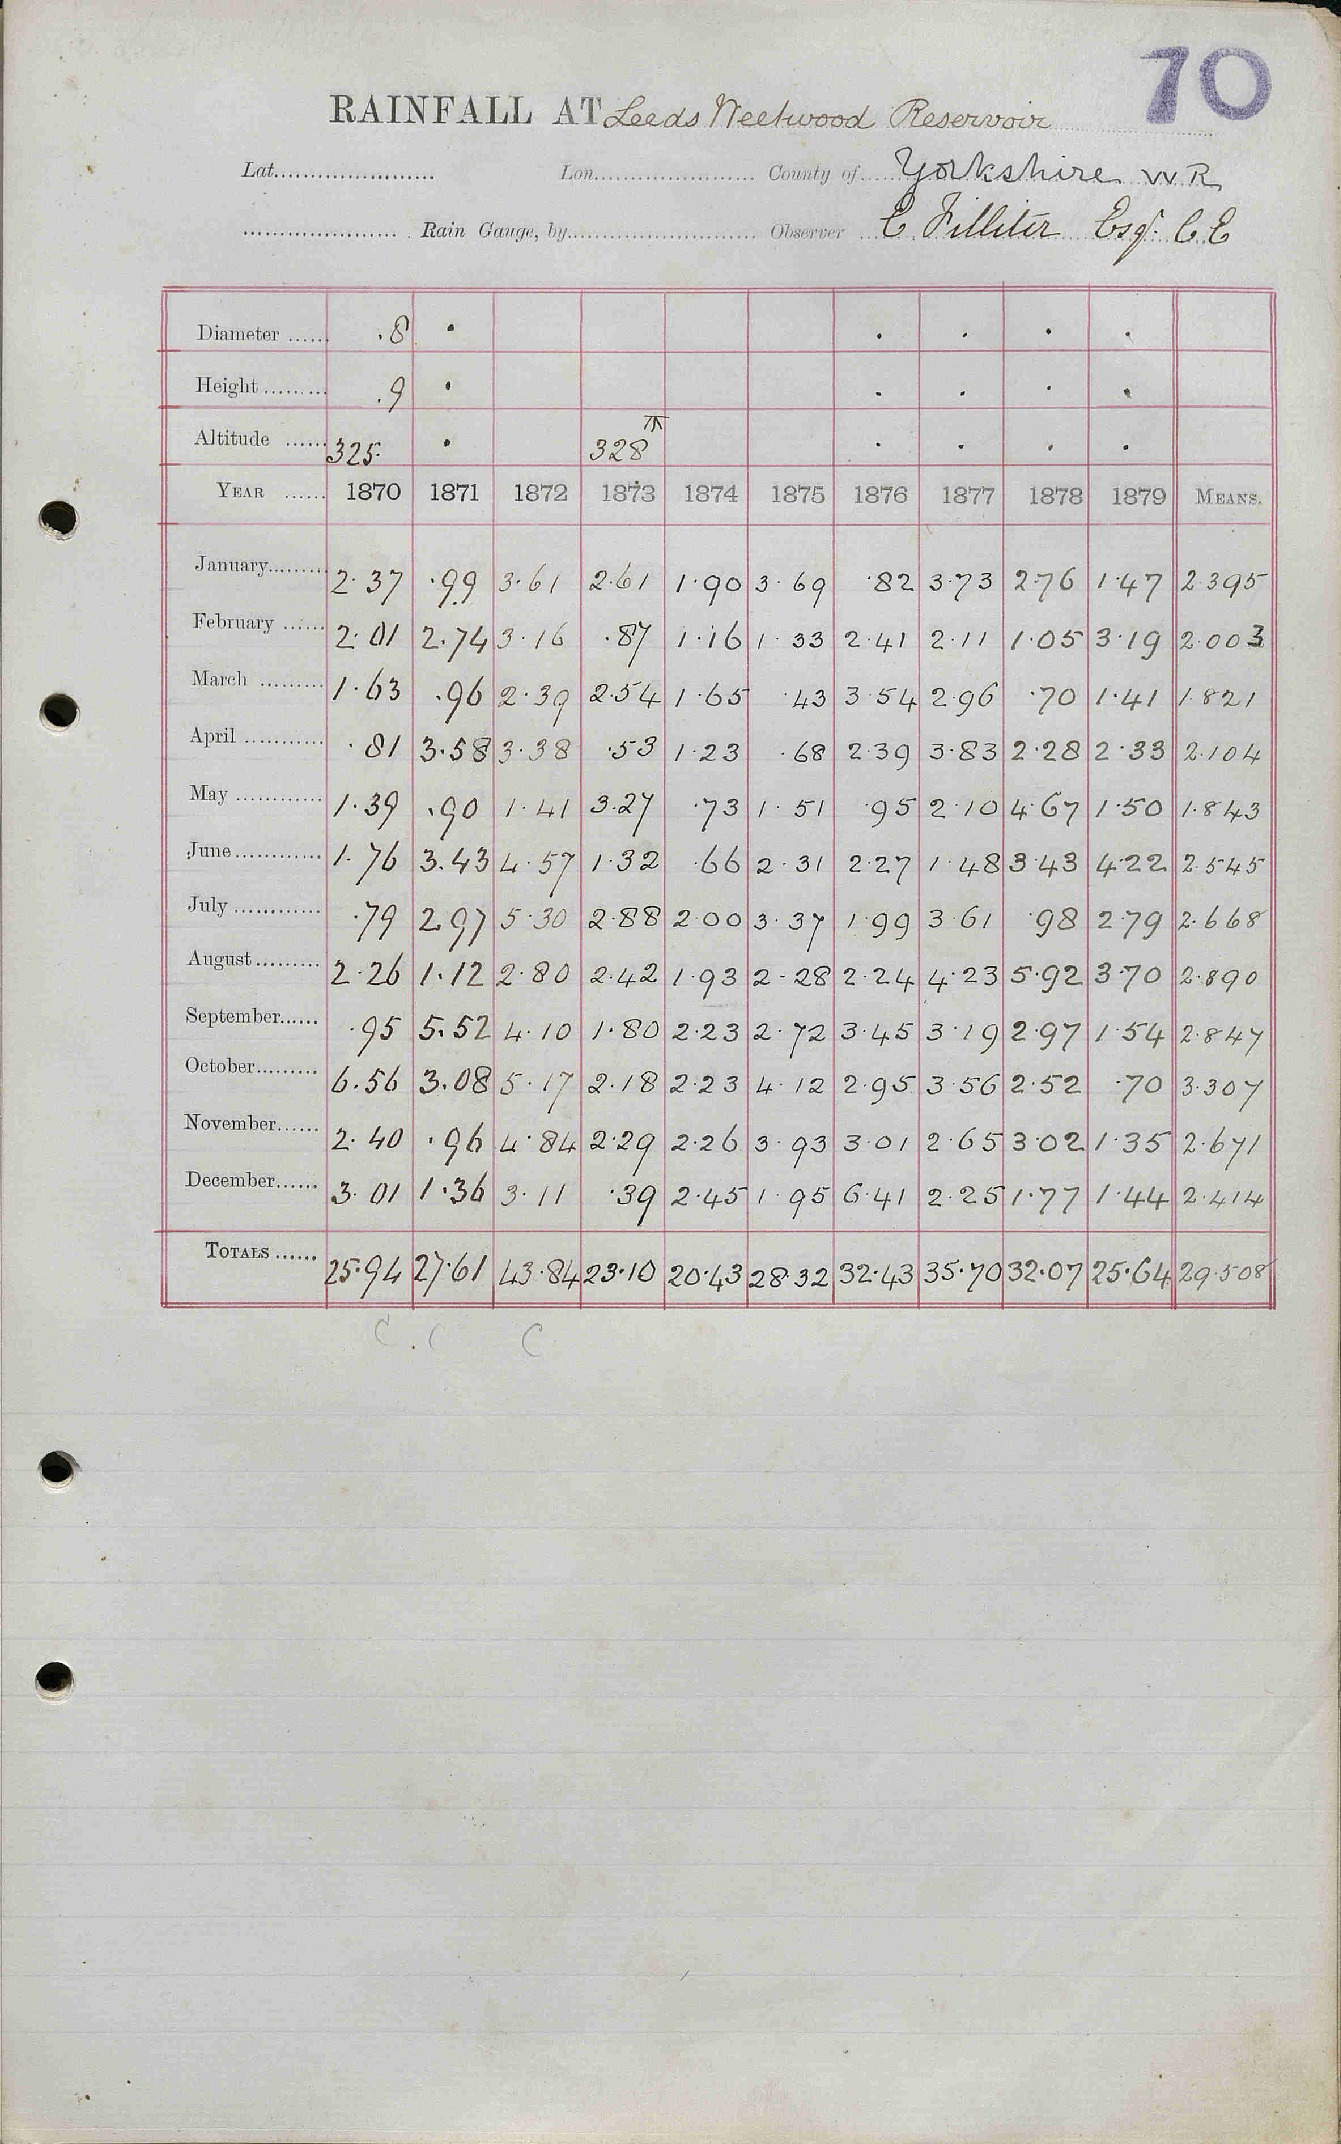 70
RAINFALL AT Leeds Weetwood Reservoir
Lat...................... Lon...................... County of Yorkshire W R
..................... Rain Gauge, by.......................... Observer E Filliter Esqr. C E
Diameter ...... .8 · · · · ·
Height ......... .9 · · · · ·
Altitude ...... 325 · 328 · · · ·
YEAR ...... 1870 1871 1872 1873 1874 1875 1876 1877 1878 1879 MEANS.
January......... 2.37 .99 3.61 2.61 1.90 3.69 .82 3.73 2.76 1.47 2.395
February ...... 2.01 2.74 3.16 .87 1.16 1.33 2.41 2.11 1.05 3.19 2.003
March ......... 1.63 .96 2.39 2.54 1.65 .43 3.54 2.96 .70 1.41 1.821
April ........... .81 3.58 3.38 .53 1.23 .68 2.39 3.83 2.28 2.33 2.104
May ............ 1.39 .90 1.41 3.27 .73 1.51 .95 2.10 4.67 1.50 1.843
June............ 1.76 3.43 4.57 1.32 .66 2.31 2.27 1.48 3.43 4.22 2.545
July ............ .79 2.97 5.30 2.88 2.00 3.37 1.99 3.61 .98 2.79 2.668
August......... 2.26 1.12 2.80 2.42 1.93 2.28 2.24 4.23 5.92 3.70 2.890
September...... .95 5.52 4.10 1.80 2.23 2.72 3.45 3.19 2.97 1.54 2.847
October......... 6.56 3.08 5.17 2.18 2.23 4.12 2.95 3.56 2.52 .70 3.307
November...... 2.40 .96 4.84 2.29 2.26 3.93 3.01 2.65 3.02 1.35 2.671
December...... 3.01 1.36 3.11 .39 2.45 1.95 6.41 2.25 1.77 1.44 2.414
TOTALS ...... 25.94 27.61 43.84 23.10 20.43 28.32 32.43 35.70 32.07 25.64 29.508
C . C C